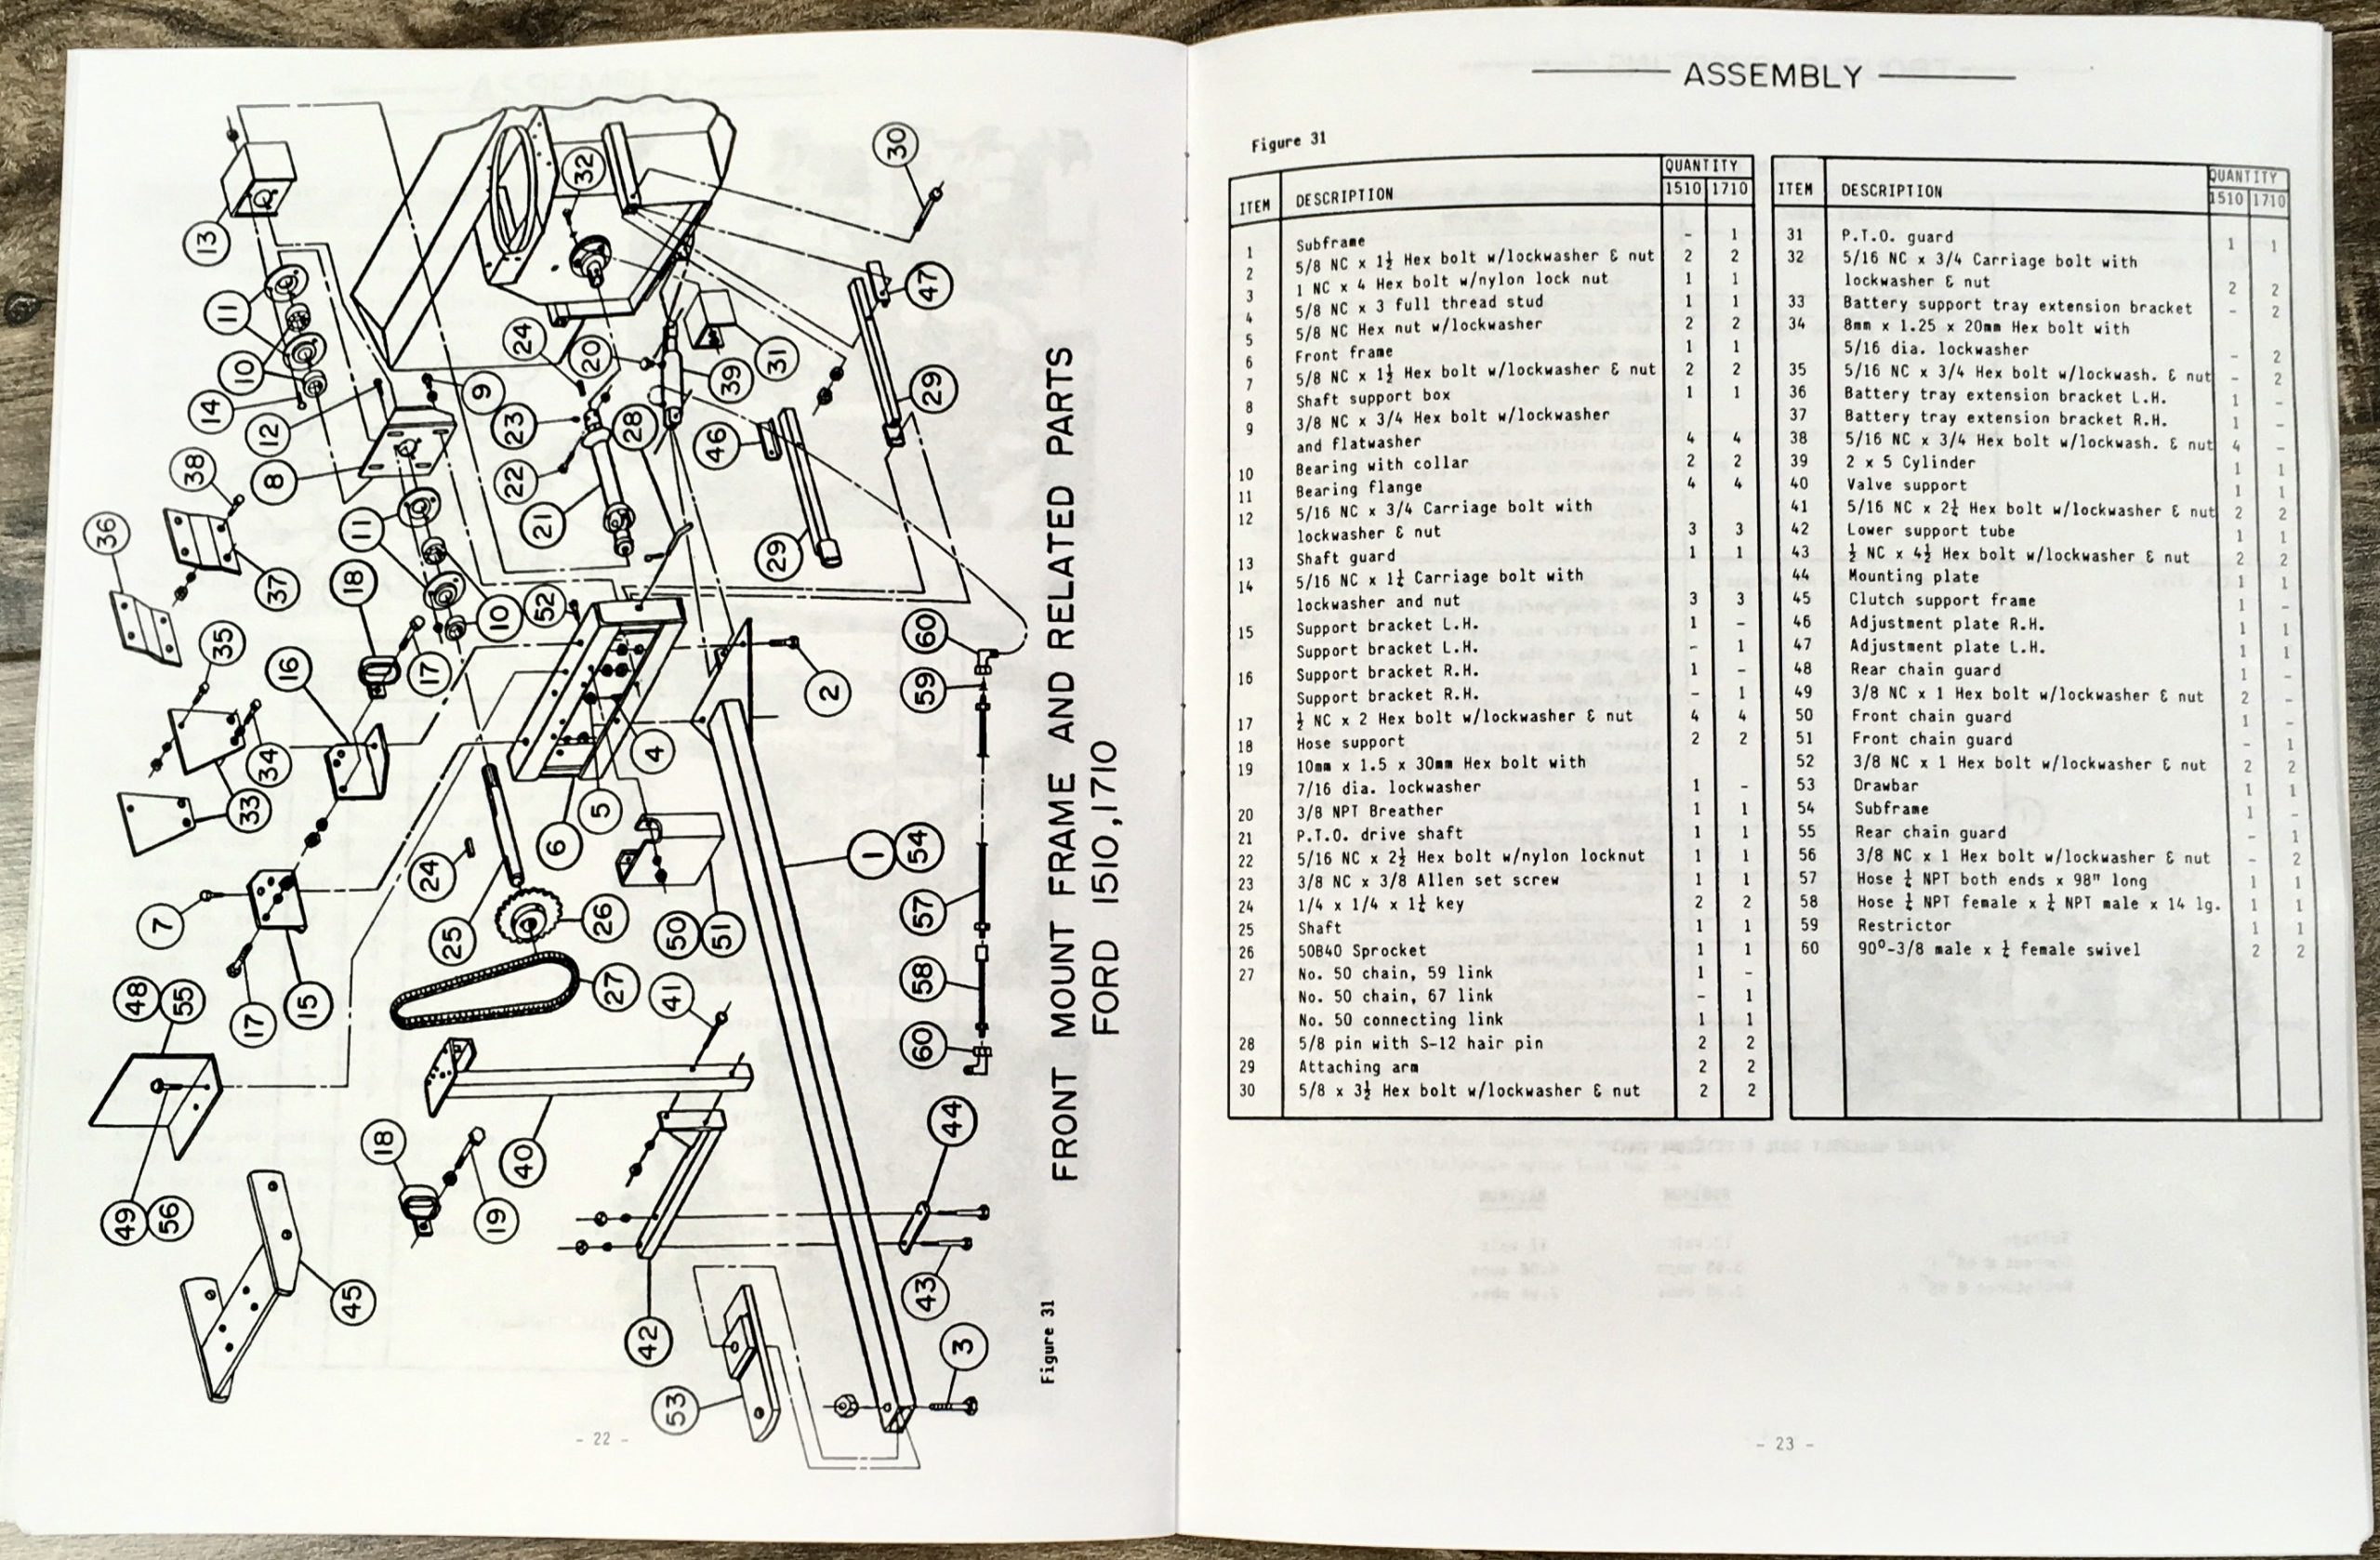 36
38
13
37
8
12
14
10
11
11
35
18
11
9
24
32
30
16
17
10
52
22
23
20
21
28
31
47
34
33
39
46
29
29
7
24
6
5
4
2
60
59
48
55
17
15
25
26
50
51
1
54
57
27
41
58
60
49
56
18
19
40
44
45
42
43
53
3
Figure 31
FRONT MOUNT FRAME AND RELATED PARTS
FORD 1510,1710
- 22 -
ASSEMBLY
Figure 31
ITEM DESCRIPTION QUANTITY 1510 1710
1 Subframe - 1
2 5/8 NC x 1½ Hex bolt w/lockwasher & nut 2 2
3 1 NC x 4 Hex bolt w/nylon lock nut 1 1
4 5/8 NC x 3 full thread stud 1 1
5 5/8 NC Hex nut w/lockwasher 2 2
6 Front frame 1 1
7 5/8 NC x 1½ Hex bolt w/lockwasher & nut 2 2
8 Shaft support box 1 1
9 3/8 NC x 3/4 Hex bolt w/lockwasher
and flatwasher 4 4
10 Bearing with collar 2 2
11 Bearing flange 4 4
12 5/16 NC x 3/4 Carriage bolt with
lockwasher & nut 3 3
13 Shaft guard 1 1
14 5/16 NC x 1¼ Carriage bolt with
lockwasher and nut 3 3
15 Support bracket L.H. 1 -
Support bracket L.H. - 1
16 Support bracket R.H. 1 -
Support bracket R.H. - 1
17 ½ NC x 2 Hex bolt w/lockwasher & nut 4 4
18 Hose support 2 2
19 10mm x 1.5 x 30mm Hex bolt with
7/16 dia. lockwasher 1 -
20 3/8 NPT Breather 1 1
21 P.T.O. drive shaft 1 1
22 5/16 NC x 2½ Hex bolt w/nylon locknut 1 1
23 3/8 NC x 3/8 Allen set screw 1 1
24 1/4 x 1/4 x 1¼ key 2 2
25 Shaft 1 1
26 50B40 Sprocket 1 1
27 No. 50 chain, 59 link 1 -
No. 50 chain, 67 link - 1
No. 50 connecting link 1 1
28 5/8 pin with S-12 hair pin 2 2
29 Attaching arm 2 2
30 5/8 x 3½ Hex bolt w/lockwasher & nut 2 2
ITEM DESCRIPTION QUANTITY 1510 1710
31 P.T.O. guard 1 1
32 5/16 NC x 3/4 Carriage bolt with
lockwasher & nut 2 2
33 Battery support tray extension bracket - 2
34 8mm x 1.25 x 20mm Hex bolt with
5/16 dia. lockwasher - 2
35 5/16 NC x 3/4 Hex bolt w/lockwash. & nut - 2
36 Battery tray extension bracket L.H. 1 -
37 Battery tray extension bracket R.H. 1 -
38 5/16 NC x 3/4 Hex bolt w/lockwash. & nut 4 -
39 2 x 5 Cylinder 1 1
40 Valve support 1 1
41 5/16 NC x 2¼ Hex bolt w/lockwasher & nut 2 2
42 Lower support tube 1 1
43 ½ NC x 4½ Hex bolt w/lockwasher & nut 2 2
44 Mounting plate 1 1
45 Clutch support frame 1 -
46 Adjustment plate R.H. 1 1
47 Adjustment plate L.H. 1 1
48 Rear chain guard 1 -
49 3/8 NC x 1 Hex bolt w/lockwasher & nut 2 -
50 Front chain guard 1 -
51 Front chain guard - 1
52 3/8 NC x 1 Hex bolt w/lockwasher & nut 2 2
53 Drawbar 1 1
54 Subframe 1 -
55 Rear chain guard - 1
56 3/8 NC x 1 Hex bolt w/lockwasher & nut - 2
57 Hose ¼ NPT both ends x 98" long 1 1
58 Hose ¼ NPT female x ¼ NPT male x 14 lg. 1 1
59 Restrictor 1 1
60 90⁰-3/8 male x ¼ female swivel 2 2
- 23 -